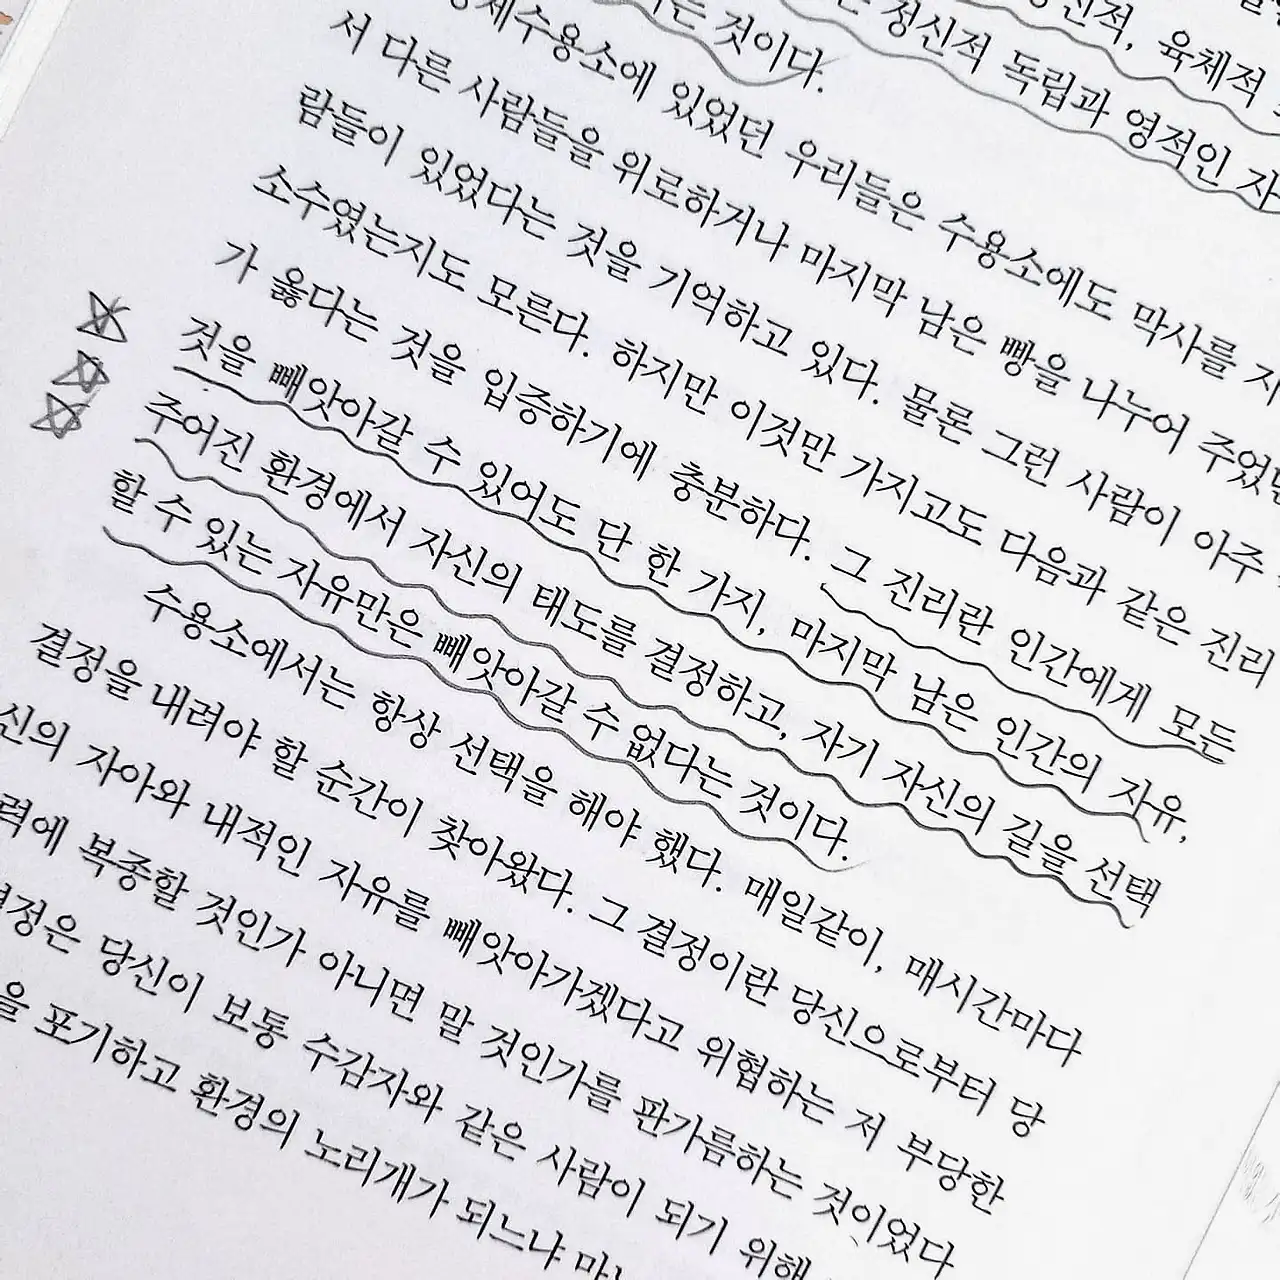 신적, 육체적
정신적 독립과 영적인 자
는 것이다.
강제수용소에 있었던 우리들은 수용소에도 막사를 지
서 다른 사람들을 위로하거나 마지막 남은 빵을 나누어 주었던
람들이 있었다는 것을 기억하고 있다. 물론 그런 사람이 아주
소수였는지도 모른다. 하지만 이것만 가지고도 다음과 같은 진리
가 옳다는 것을 입증하기에 충분하다. 그 진리란 인간에게 모든
것을 빼앗아갈 수 있어도 단 한 가지, 마지막 남은 인간의 자유,
주어진 환경에서 자신의 태도를 결정하고, 자기 자신의 길을 선택
할 수 있는 자유만은 빼앗아갈 수 없다는 것이다.
수용소에서는 항상 선택을 해야 했다. 매일같이, 매시간마다
결정을 내려야 할 순간이 찾아왔다. 그 결정이란 당신으로부터 당
신의 자아와 내적인 자유를 빼앗아가겠다고 위협하는 저 부당한
력에 복종할 것인가 아니면 말 것인가를 판가름하는 것이었다
결정은 당신이 보통 수감자와 같은 사람이 되기 위해
을 포기하고 환경의 노리개가 되느냐